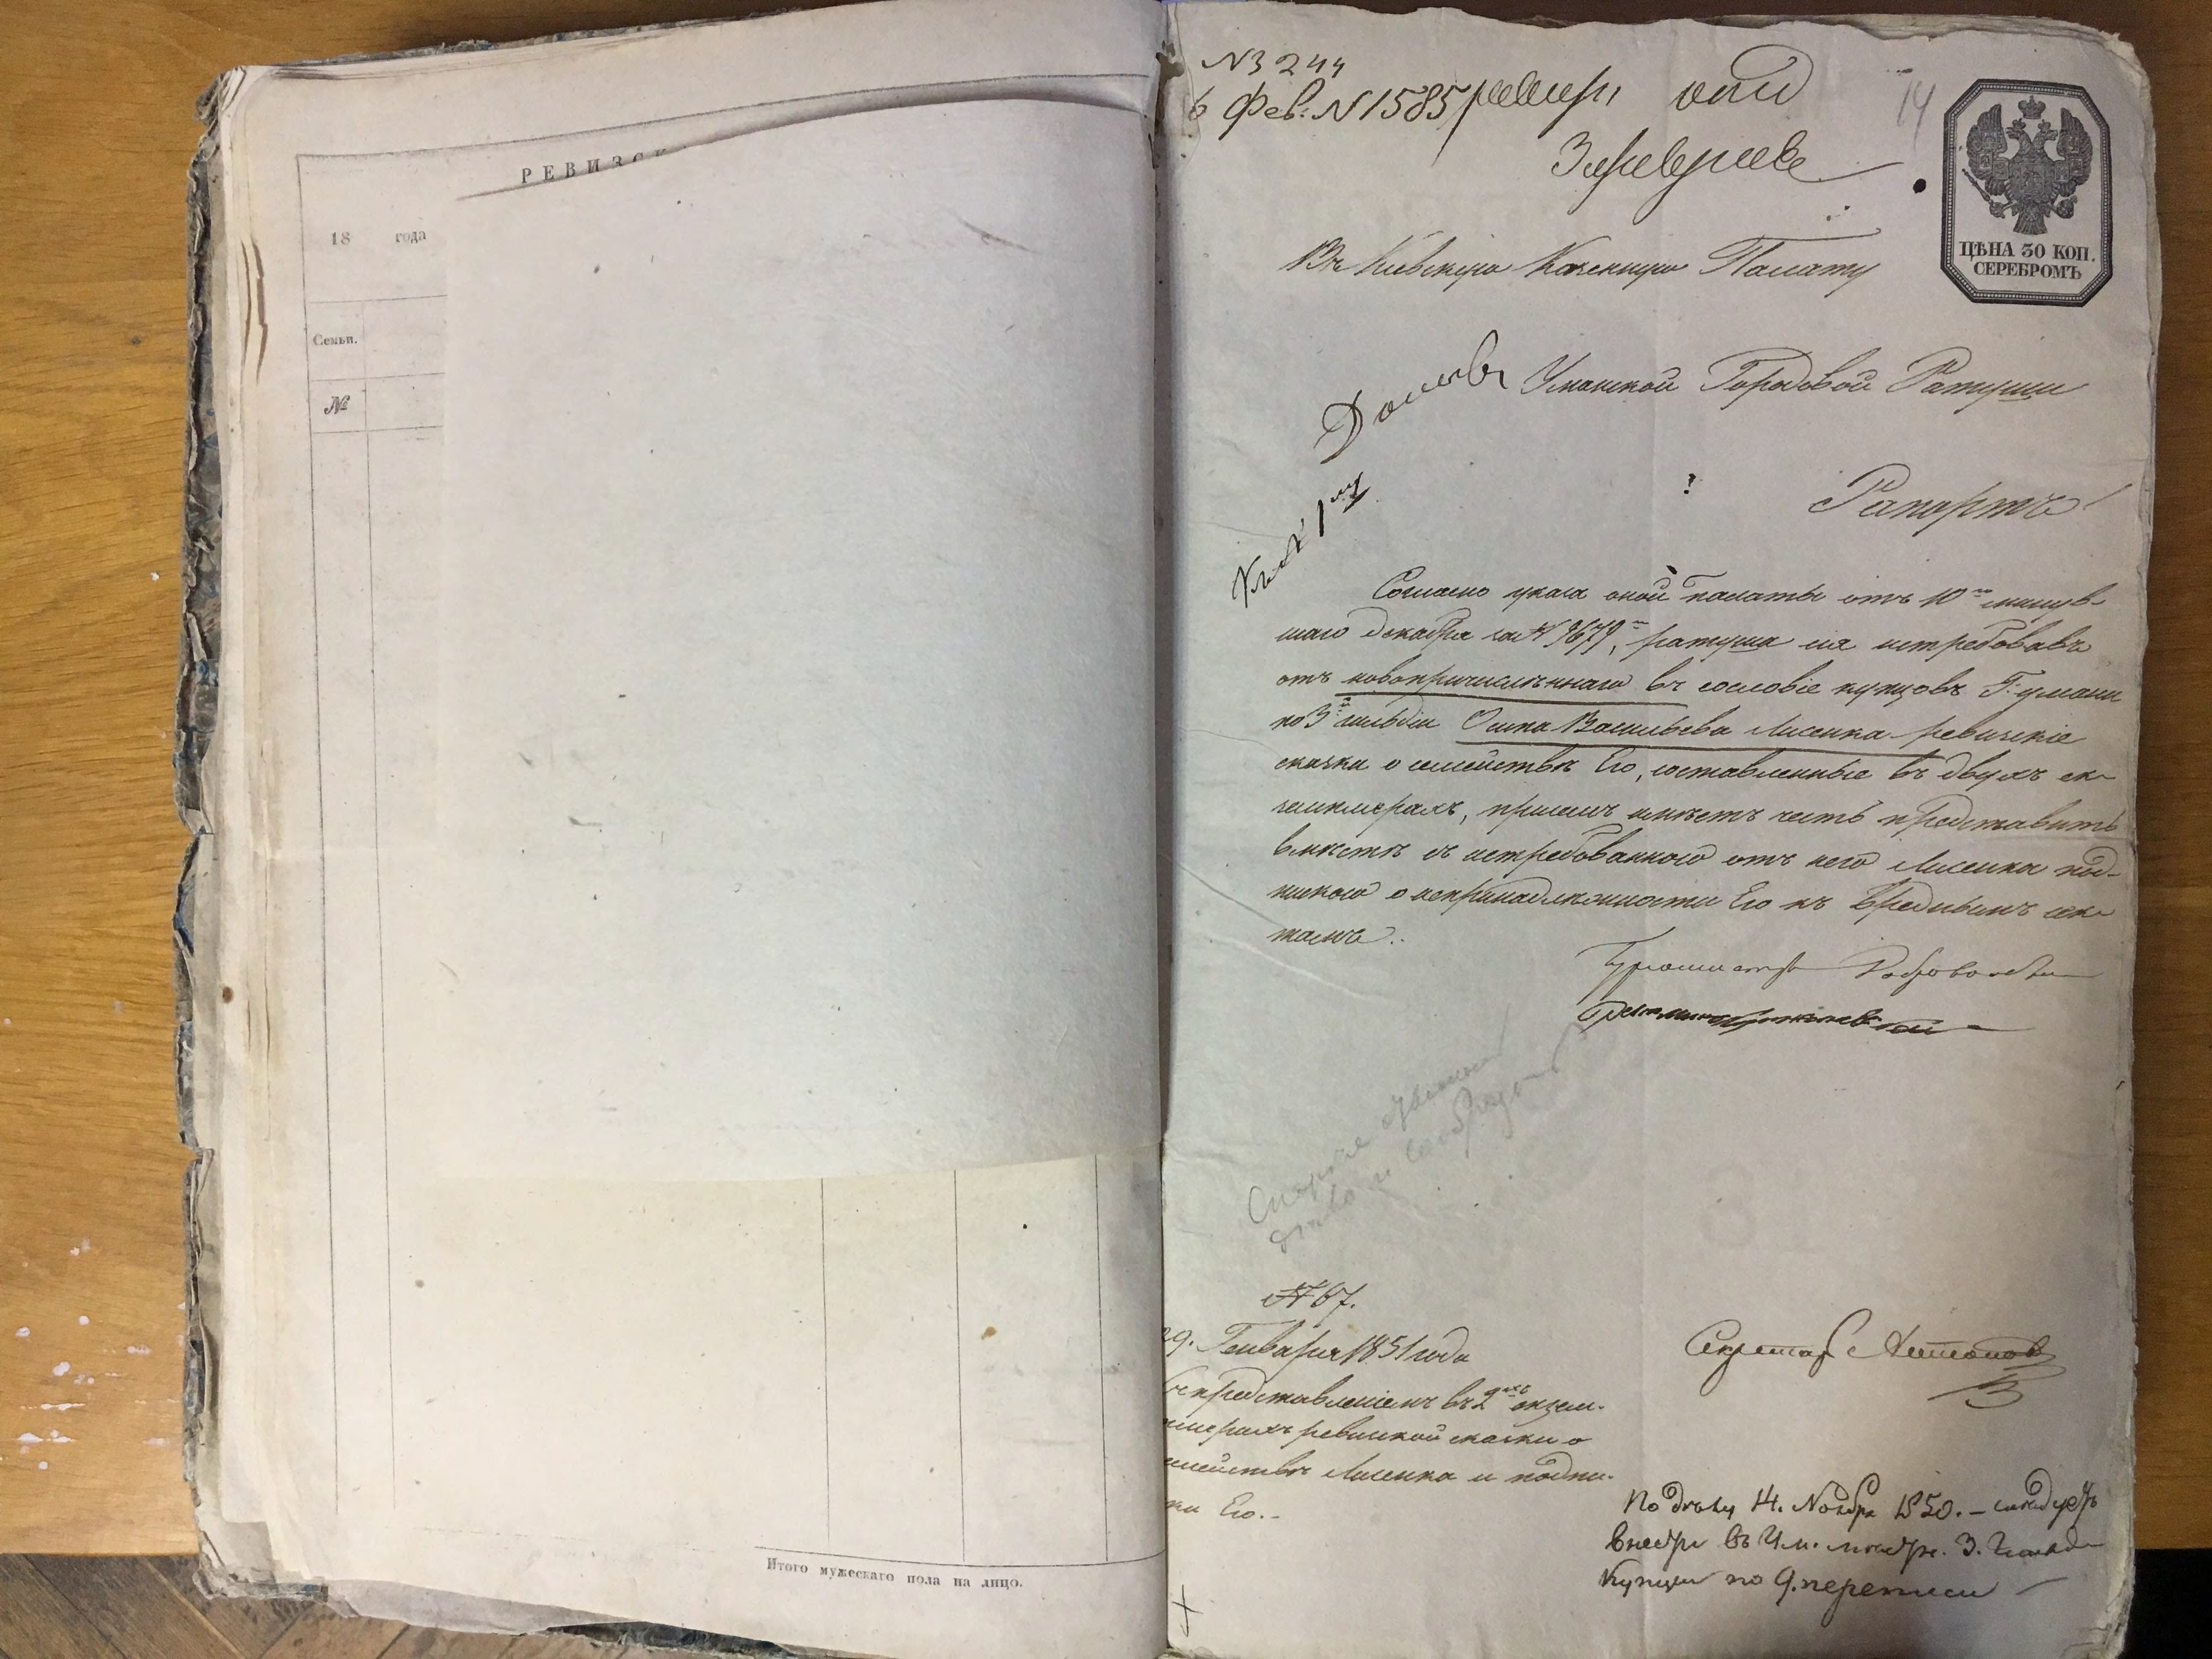 РЕВИЗСК
18 года
Семьи.
№
Итого мужескаго пола на лицо.
N 3244
6 Фев: N 1585
14
ЦѢНА 30 КОП.
СЕРЕБРОМЪ
Въ Кіевскую Казенную Палату
Уманской Городовой Ратуши
Рапортъ
Согласно указа оной палаты отъ 10го минув-
шаго декабря за № 9679м, ратуша сія истребовавъ
отъ новопричисленнаго въ сословіе купцовъ Г. умани
по 3й гильдіи Осипа Васильева Лисенка ревизскіе
сказки о семействѣ Его, составленные въ двухъ эк-
земплярахъ, при семъ имѣетъ честь представить
вмѣстѣ съ истребованною отъ него Лисенка под-
пискою о непринадлежности Его къ вреднымъ сек-
тамъ..
Секретарь
№ 67.
29. Генваря 1851 года
Съ представленіемъ въ 2хъ экзем-
плярахъ ревизской сказки о
семействѣ Лисенка и подпи-
ски Его.-
По дѣлу 14. Ноября 1850. – слѣдуетъ
3.
Купцы по 9. переписи